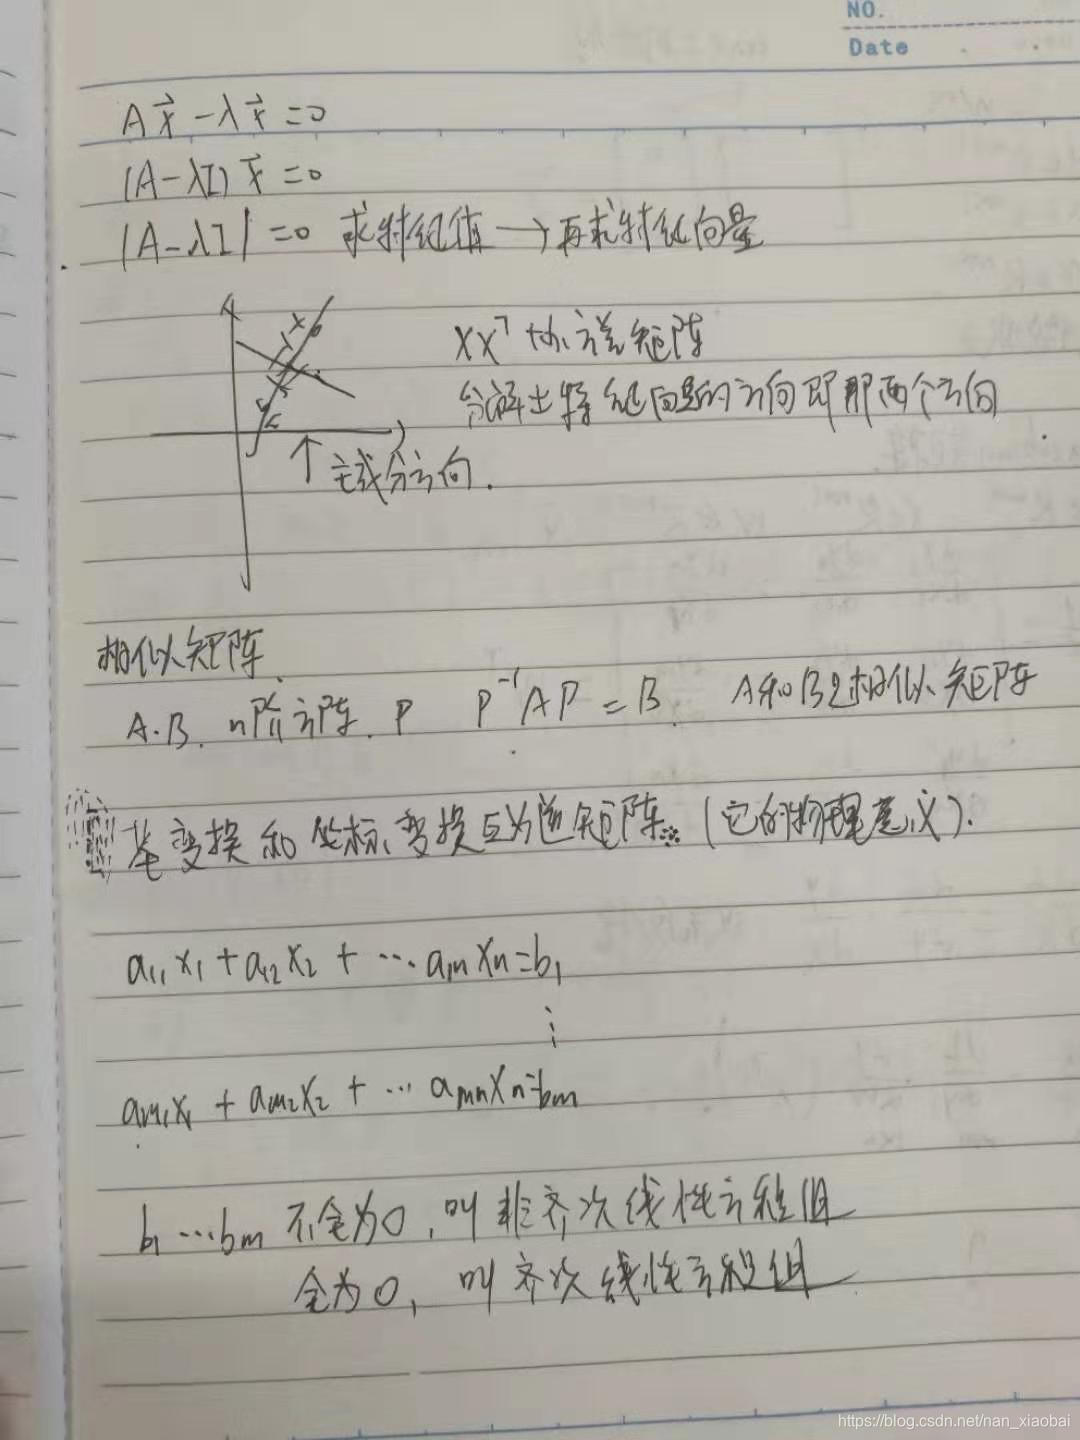 NO.
Date
Ax⃗ - λx⃗ = 0
(A-λI) x⃗ = 0
|A-λI| = 0 求特征值 → 再求特征向量
XXᵀ 协方差矩阵
分解出特征向量的方向即那两个方向
↑ 主成分方向.
相似矩阵
A.B. n阶方阵. P P⁻¹AP = B. A和B是相似矩阵
基变换和坐标变换互为逆矩阵. (它的物理意义).
a₁₁x₁ + a₁₂x₂ + ⋯ a₁ₙxₙ = b₁
⋮
aₘ₁x₁ + aₘ₂x₂ + ⋯ aₘₙxₙ = bₘ
b₁ ⋯ bₘ 不全为0, 叫非齐次线性方程组
全为0, 叫齐次线性方程组
https://blog.csdn.net/nan_xiaobai